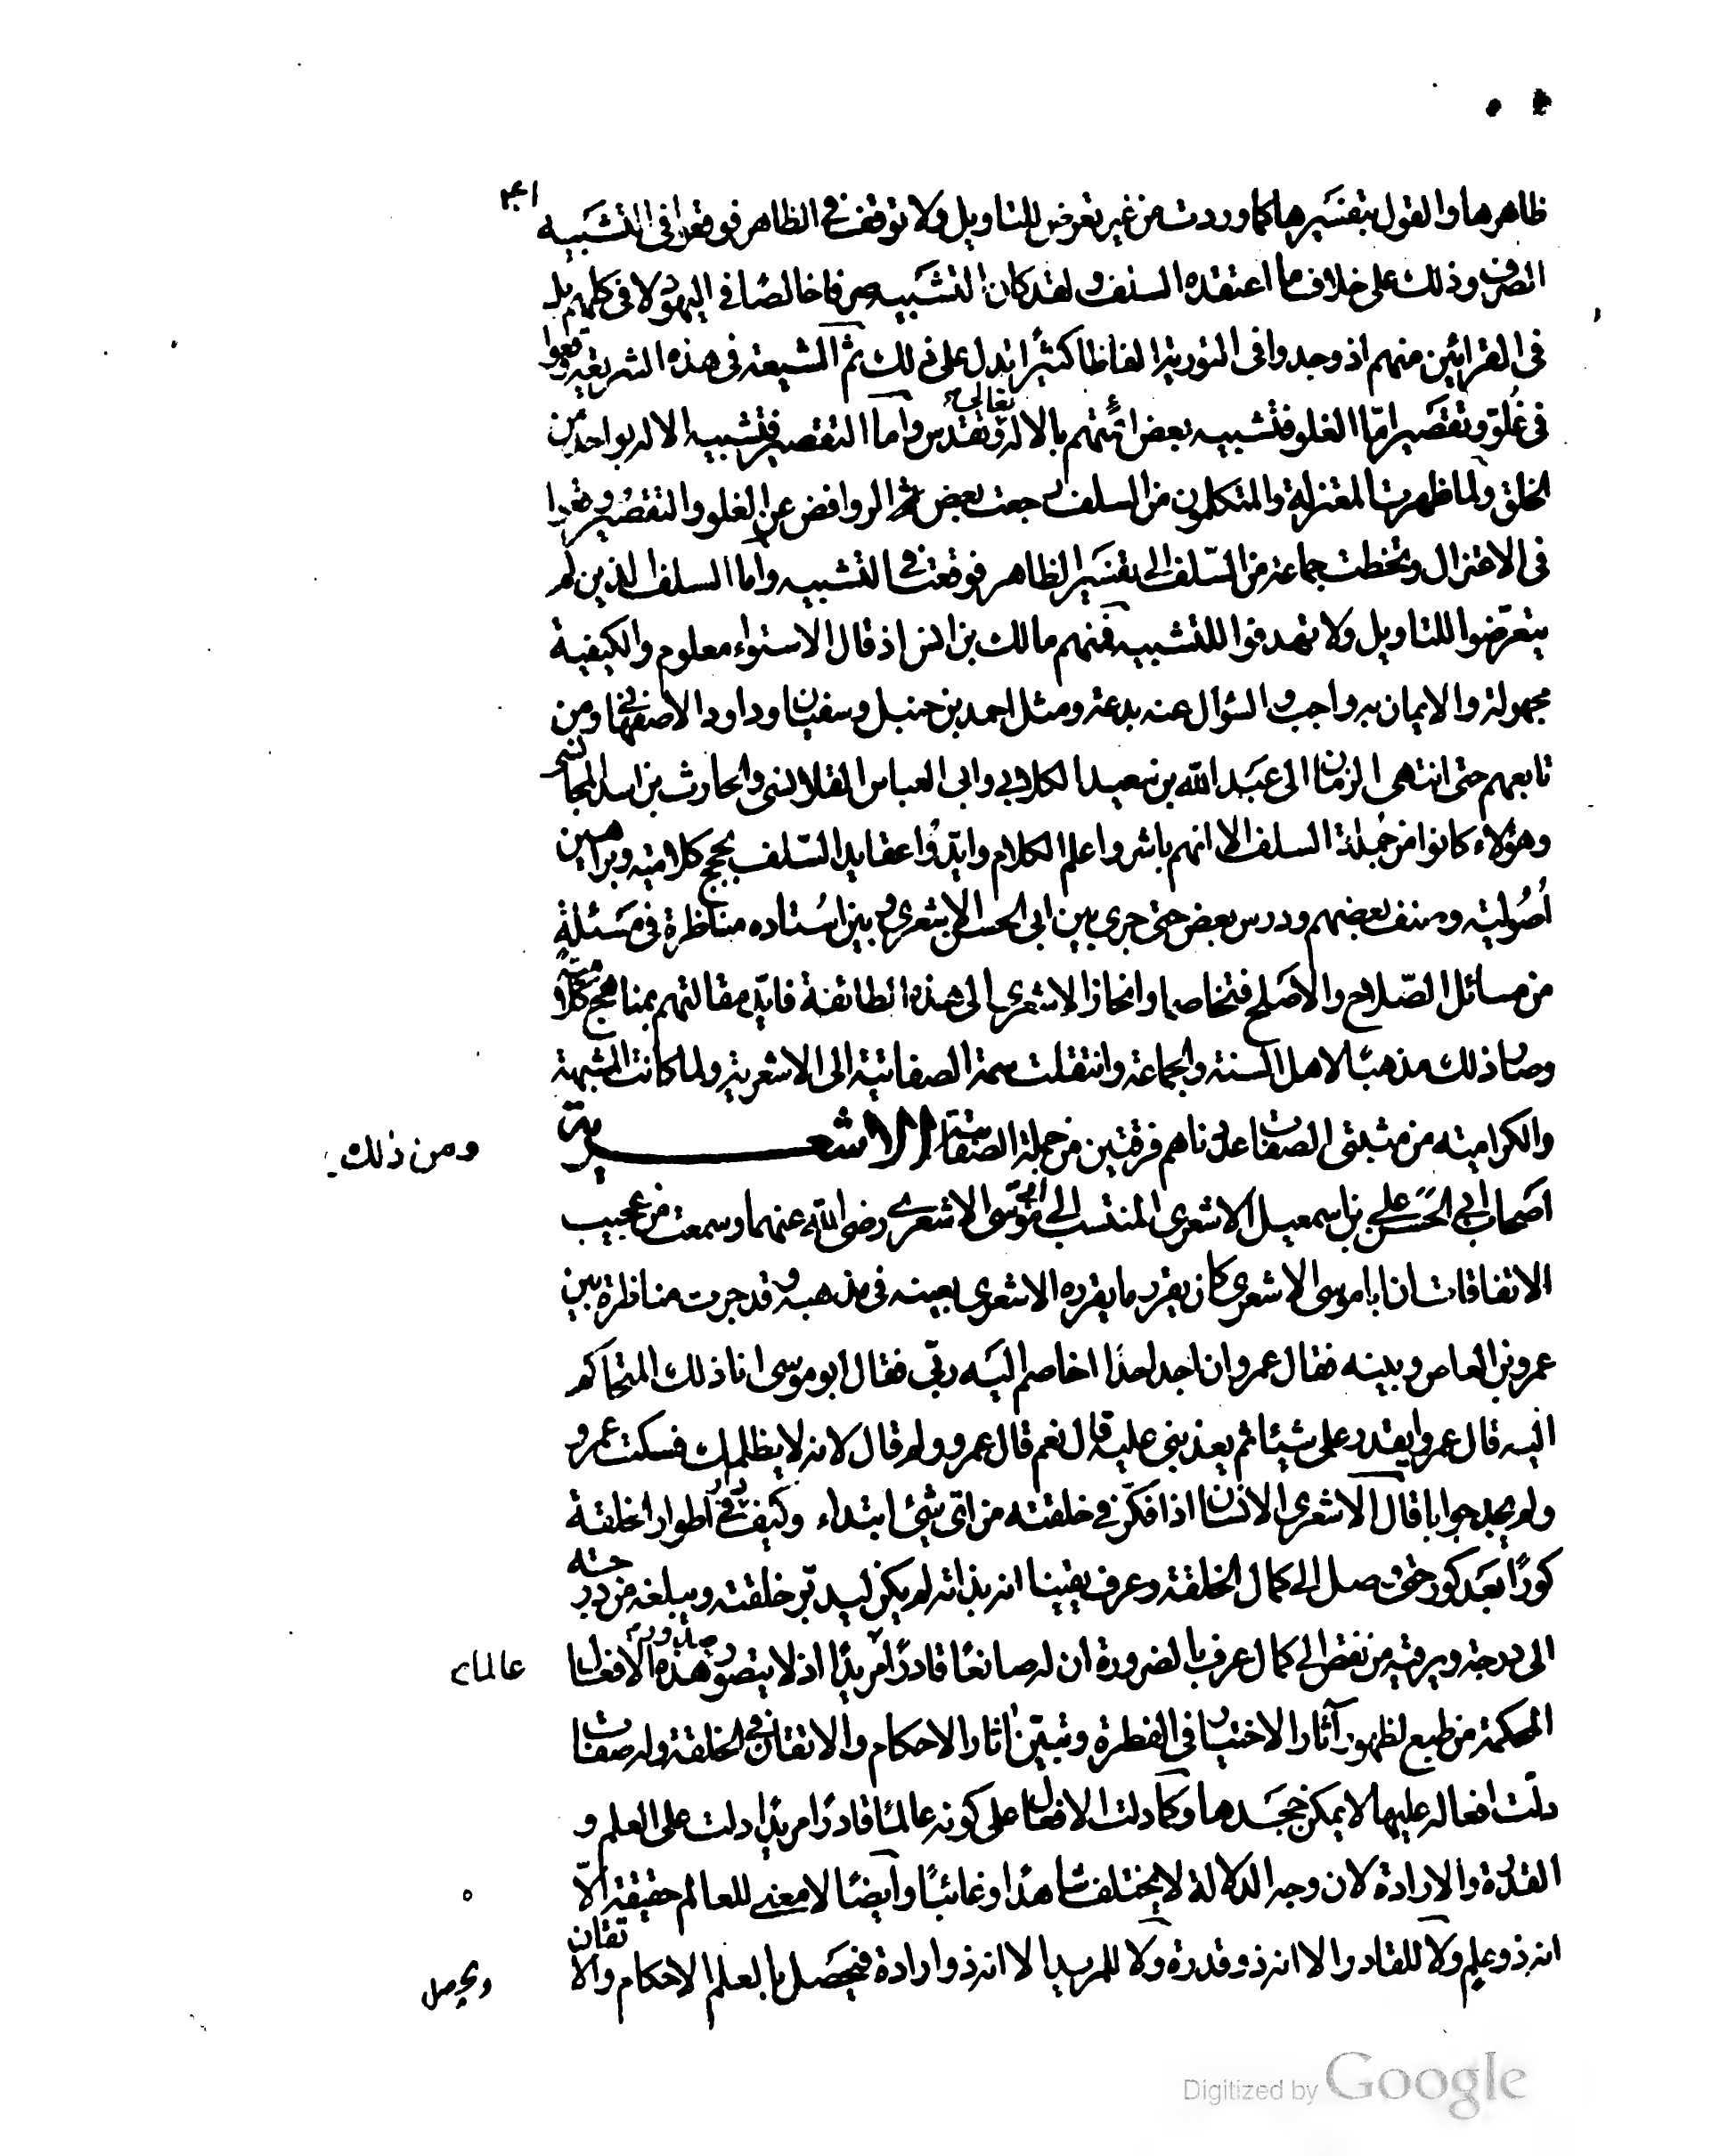 ظاهرها والقول بتفسيرها كما وردت من غير تعرض للتاويل ولا توقف فى الظاهر فوقعوا فى التشبيه
الصرف وذلك على خلاف ما اعتقده السلف ولقد كان التشبيه صرفا خالصا فى اليهود لا فى كلهم بل
فى القرائين منهم اذ وجدوا فى التورية الفاظا كثيرا تدل على ذلك ثم الشيعة فى هذه الشريعة وقعوا
فى غلو وتقصير اما الغلو فتشبيه بعض ائمتهم بالاله تعالى وتقدس واما التقصير فتشبيه الاله بواحد من
الخلق ولما ظهرت المعتزلة والمتكلمون من السلف رجعت بعض الروافض عن الغلو والتقصير ووقعوا
فى الاعتزال وتخطت جماعة من السلف الى تفسير الظاهر فوقعت فى التشبيه واما السلف الذين لم
يتعرضوا للتاويل ولا تهدفوا للتشبيه فمنهم مالك بن انس اذ قال الاستواء معلوم والكيفية
مجهولة والايمان به واجب والسؤال عنه بدعة ومثل احمد بن حنبل وسفيان وداود الاصفهانى ومن
تابعهم حتى انتهى الزمان الى عبد الله بن سعيد الكلابى وابى العباس القلانسى والحارث بن اسد المحاسبى
وهؤلاء كانوا من جملة السلف الا انهم باشروا علم الكلام وايدوا عقايد السلف بحجج كلامية وبراهين
اصولية وصنف بعضهم ودرس بعض حتى جرى بين ابى الحسن الاشعرى وبين استاده مناظرة فى مسئلة
من مسائل الصلاح والاصلح فتخاصما وانحاز الاشعرى الى هذه الطائفة فايد مقالتهم بمناهج كلامية
وصار ذلك مذهبا لاهل السنة والجماعة وانتقلت سمة الصفاتية الى الاشعرية ولما كانت المشبهة
والكرامية من مثبتى الصفات عددناهم فرقتين من جملة الصفاتية الاشعرية
ومن ذلك
اصحاب ابى الحسن على بن اسمعيل الاشعرى المنتسب الى ابى موسى الاشعرى رضى الله عنهما وسمعت من عجيب
الاتفاقات ان ابا موسى الاشعرى كان يقرر ما يقرره الاشعرى بعينه فى مذهبه وقد جرت مناظرة بين
عمرو بن العاص وبينه فقال عمرو ان اجد احدا اخاصم اليه ربى فقال ابو موسى انا ذلك المتحاكم
اليه قال عمرو ايقدر على شيئا ثم يعذبنى عليه قال نعم قال عمرو ولم قال لانه لا يظلمك فسكت عمرو
ولم يجد جوابا قال الاشعرى الانسان اذا فكر فى خلقته من اى شئ ابتداء وكيف دار فى اطوار الخلقة
كورا بعد كور حتى وصل الى كمال الخلقة وعرف يقينا انه بذاته لم يكن ليدبر خلقته ويبلغه من درجة
الى درجة ويرقيه من نقص الى كمال عرف بالضرورة ان له صانعا قادرا مريدا اذ لا يتصور صدور هذه الافعال
عالما
المحكمة من طبع لظهور آثار الاختيار فى الفطرة وتبين اثار الاحكام والاتقان فى الخلقة وله صفات
دلت افعاله عليها لا يمكن جحدها وكما دلت الافعال على كونه عالما قادرا مريدا دلت على العلم و
القدرة والارادة لان وجه الدلالة لا يختلف شاهدا وغائبا وايضا لا معنى للعالم حقيقة الا
انه ذو علم ولا للقادر الا انه ذو قدرة ولا للمريد الا انه ذو ارادة فيحصل بالعلم الاحكام والاتقان
ويحصل
Digitized by Google